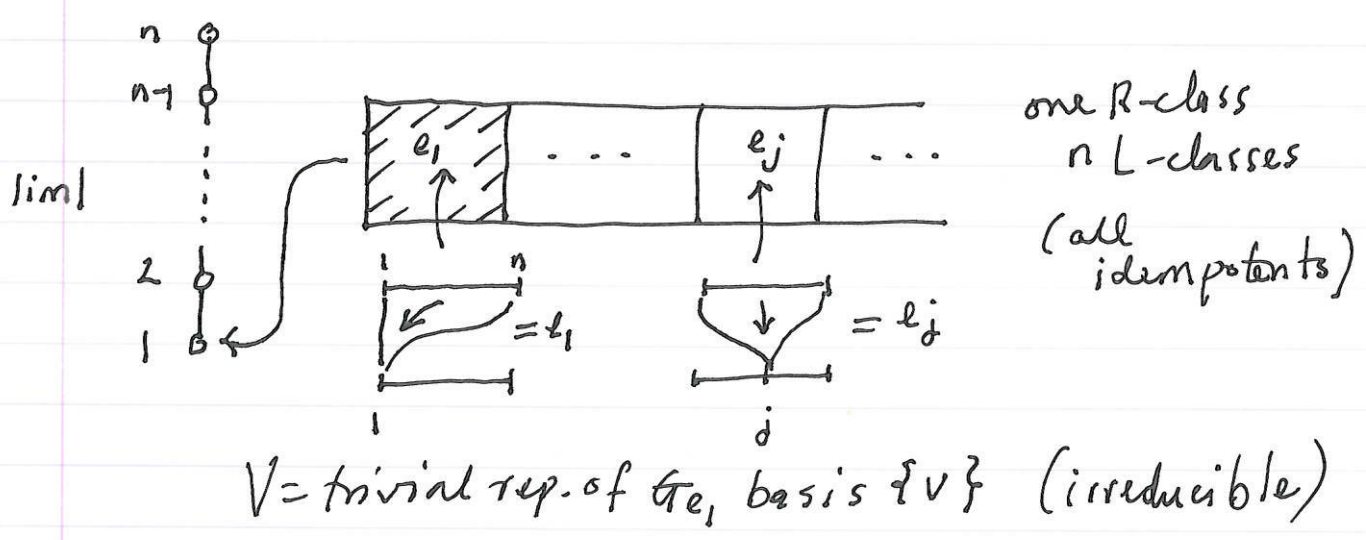 n
n-1
|im|
2
1
e₁ ... eⱼ ...
one R-class
n L-classes
(all
idempotents)
1 n
= e₁
= eⱼ
1
j
V = trivial rep. of Ge₁ basis {v} (irreducible)